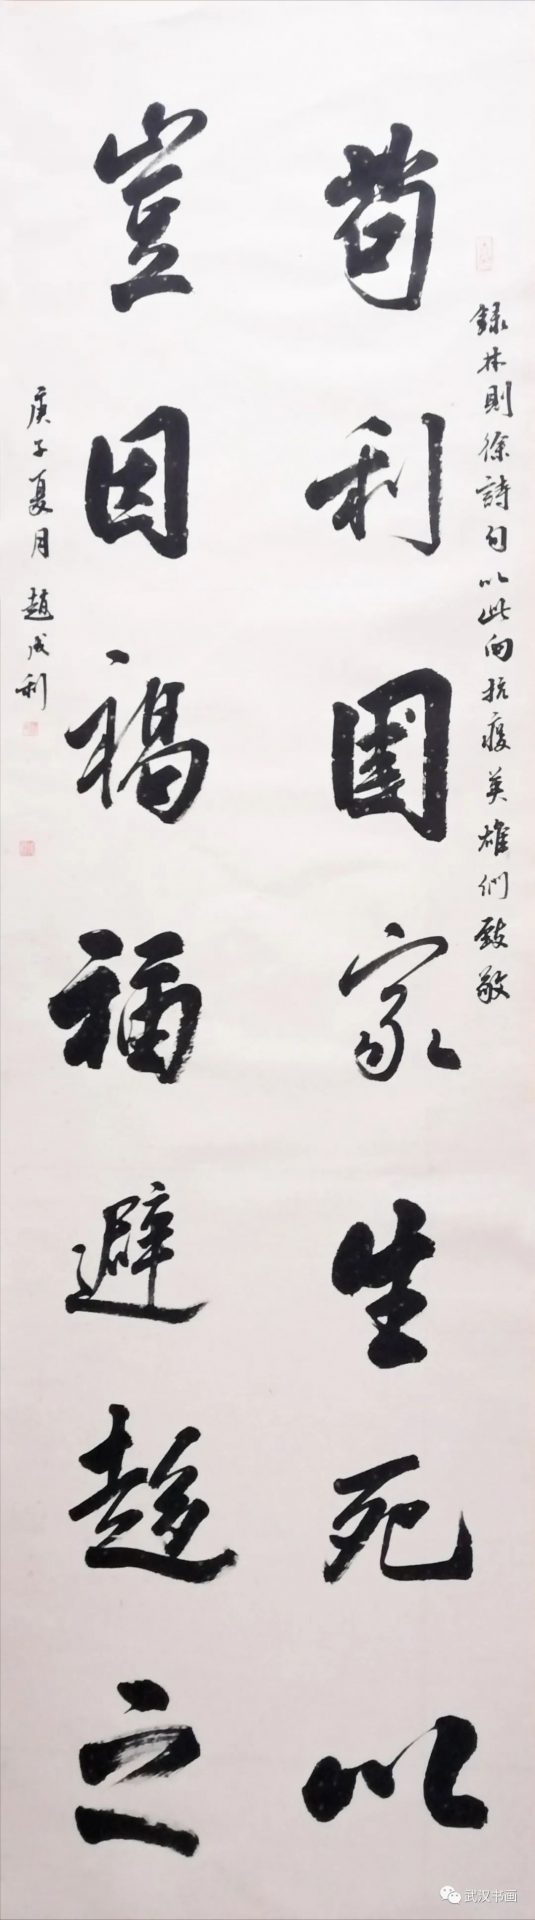 録林則徐詩句以此向抗疫英雄們致敬
苟利國家生死以
豈因禍福避趍之
庚子夏月 趙成利
武汉书画